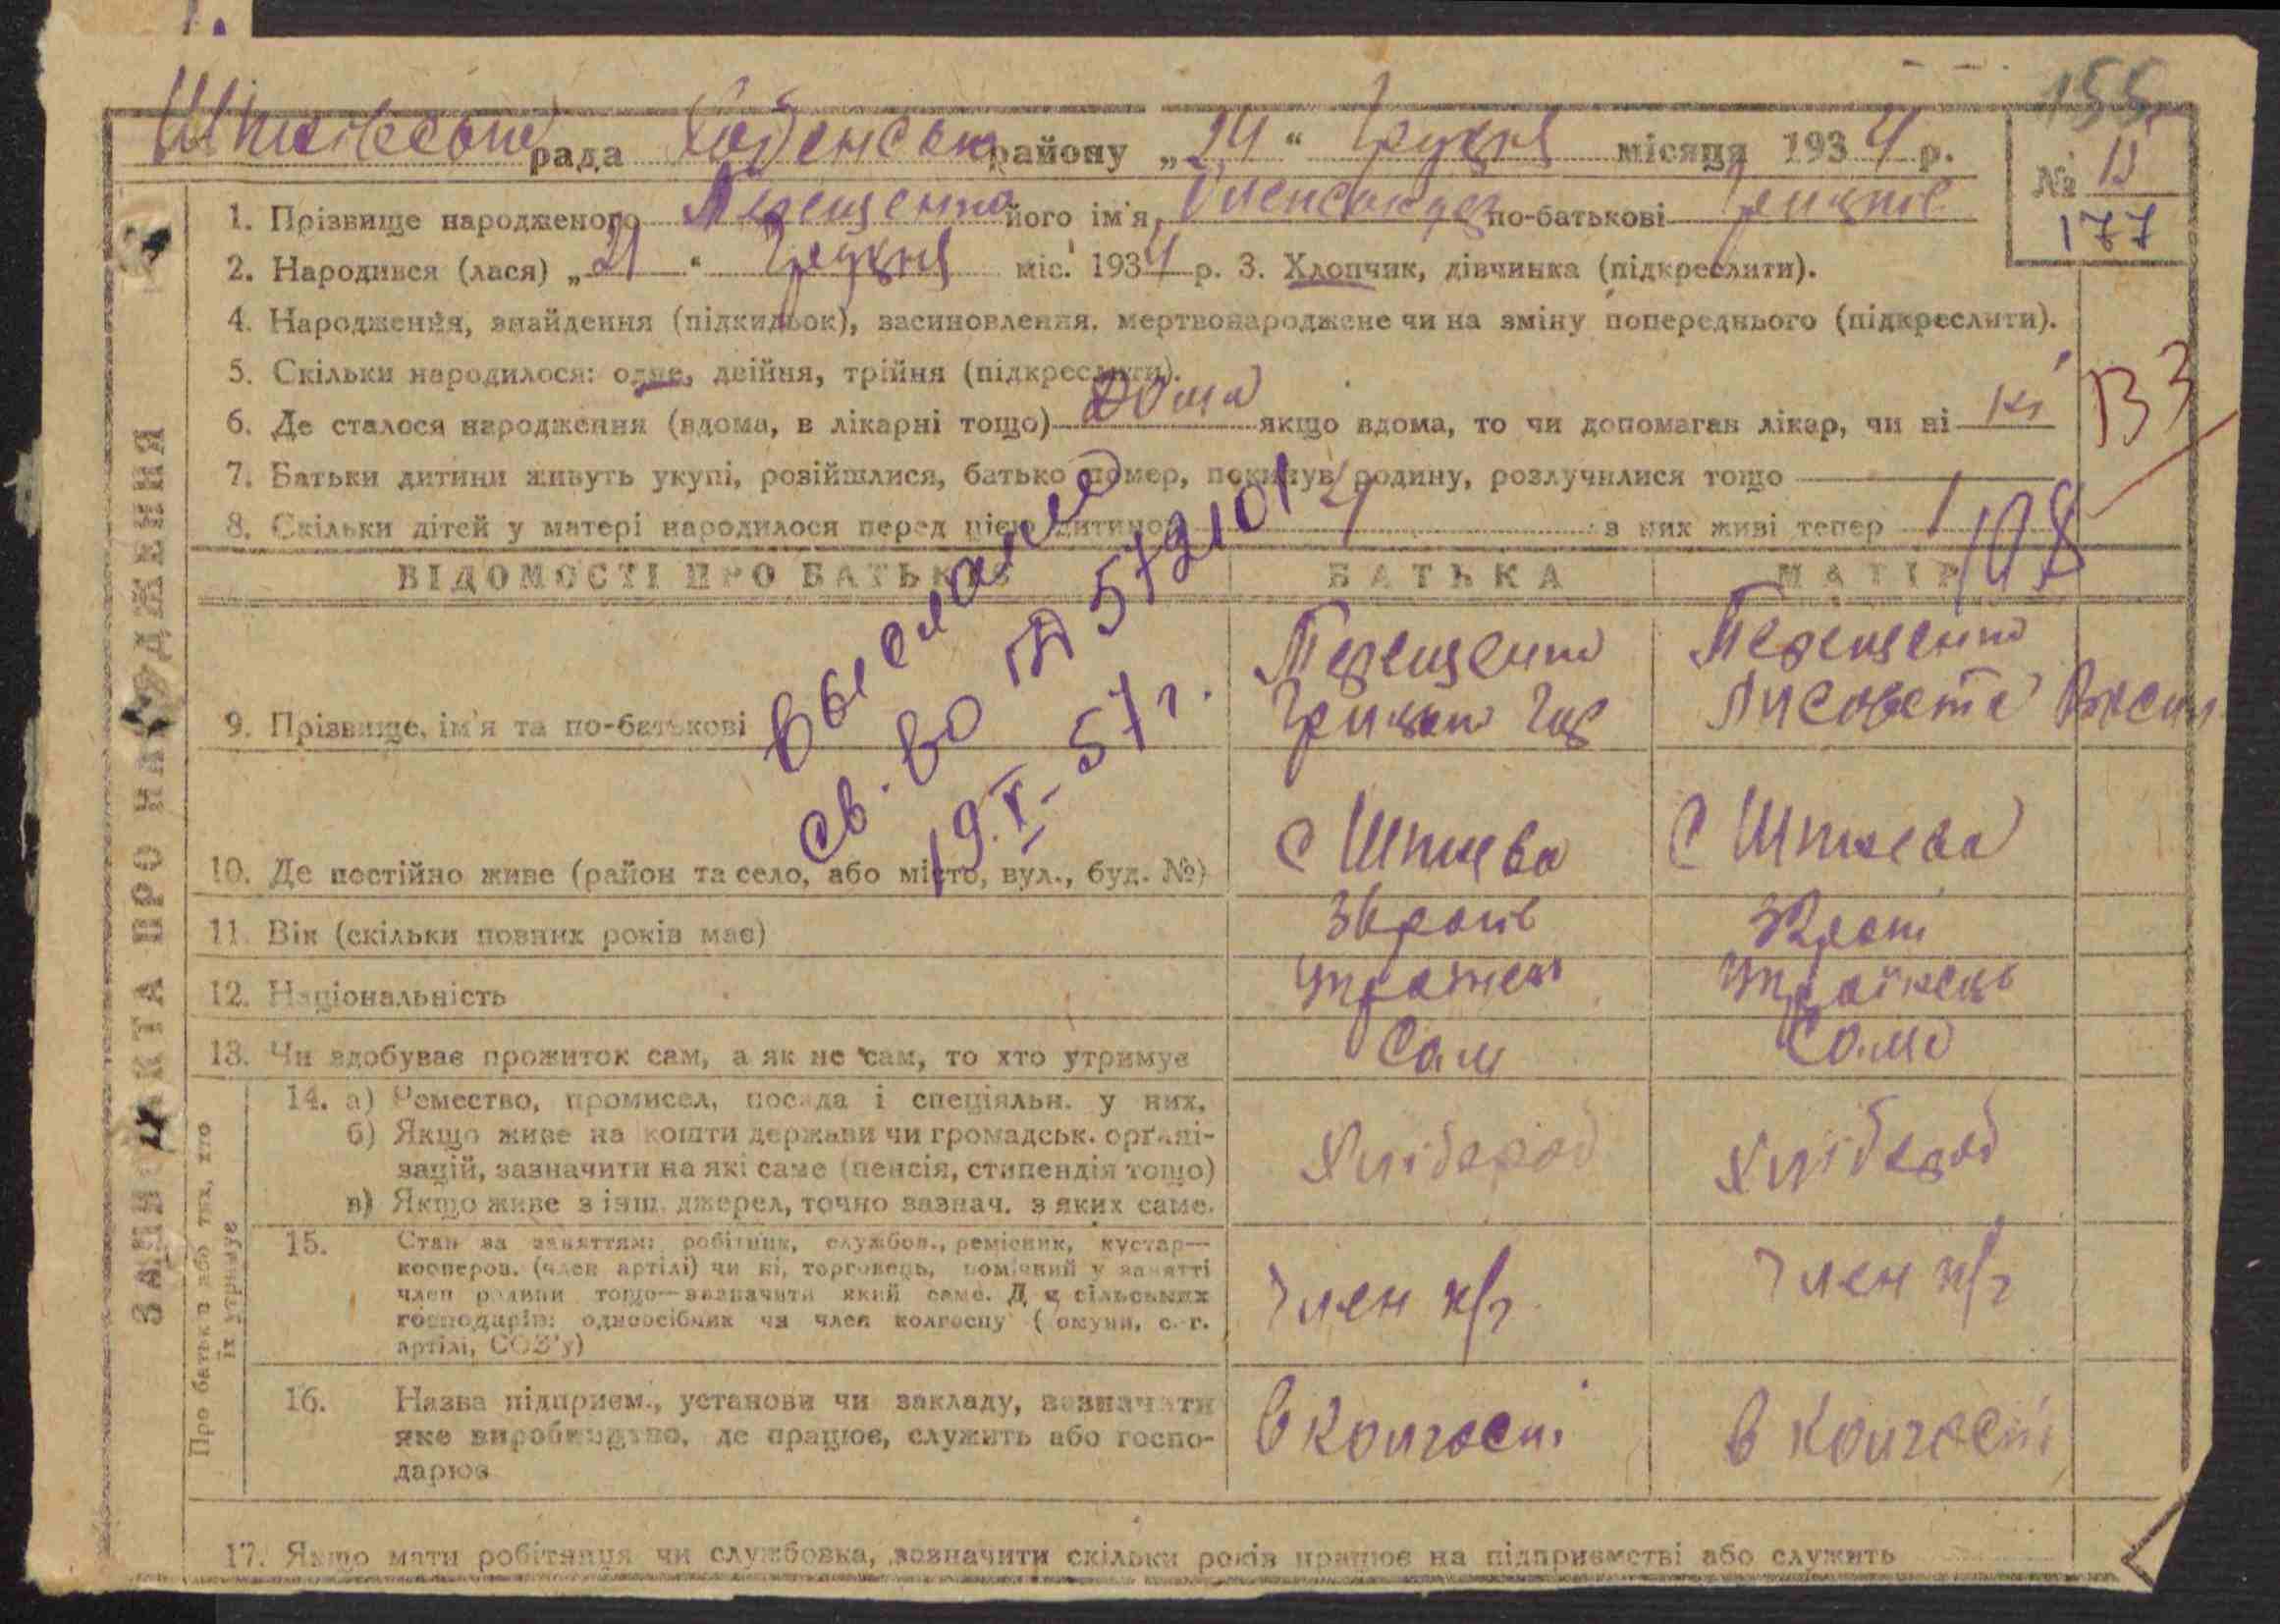 155
рада району „24“ Грудня місяця 1934 р.
№ 13
177
1. Прізвище народженого Терещенко його ім'я Олександер по-батькові
2. Народився (лася) „21“ Грудня міс. 1934 р. 3. Хлопчик, дівчинка (підкреслити).
4. Народження, знайдення (підкидьок), засиновлення, мертвонароджене чи на зміну попереднього (підкреслити).
5. Скільки народилося: одне, двійня, трійня (підкреслити).
6. Де сталося народження (вдома, в лікарні тощо) Дома якщо вдома, то чи допомагав лікар, чи ні ні
7. Батьки дитини живуть укупі, розійшлися, батько помер, покинув родину, розлучилися тощо
8. Скільки дітей у матері народилося перед цією дитиною 4 з них живі тепер 1
108
ЗАПИС АКТА ПРО НАРОДЖЕННЯ
ВІДОМОСТІ ПРО БАТЬКІВ БАТЬКА МАТІР
9. Прізвище, ім'я та по-батькові Терещенко Терещенко
Лисовета Васил
Выслано
св-во 5792101
19.X-57 г.
10. Де постійно живе (район та село, або місто, вул., буд. №) с Шпилева с Шпилева
11. Вік (скільки повних років має) 36 років 32 роки
12. Національність Українец Українець
13. Чи здобуває прожиток сам, а як не сам, то хто утримує Сам Сама
Про батька або тих, хто
їх утримує
14. а) Ремество, промисел, посада і спеціяльн. у них. Хлібороб Хлібороб
б) Якщо живе на кошти держави чи громадськ. орґані-
зацій, зазначити на які саме (пенсія, стипендія тощо)
в) Якщо живе з інш. джерел, точно зазнач. з яких саме.
15. Стан за заняттям: робітник, службов., ремісник, кустар—
кооперов. (член артілі) чи ні, торговець, помічний у занятті
член родини тощо—зазначити який саме. Для сільських
господарів: одноосібник чи член колгоспу (комуни, с.-г.
артілі, СОЗ'у)
Член к/г Член к/г
16. Назва підприєм., установи чи закладу, зазначити
яке виробництво, де працює, служить або госпо-
дарює
в колгоспі в колгоспі
17. Якщо мати робітниця чи службовка, зазначити скільки років працює на підприємстві або служить